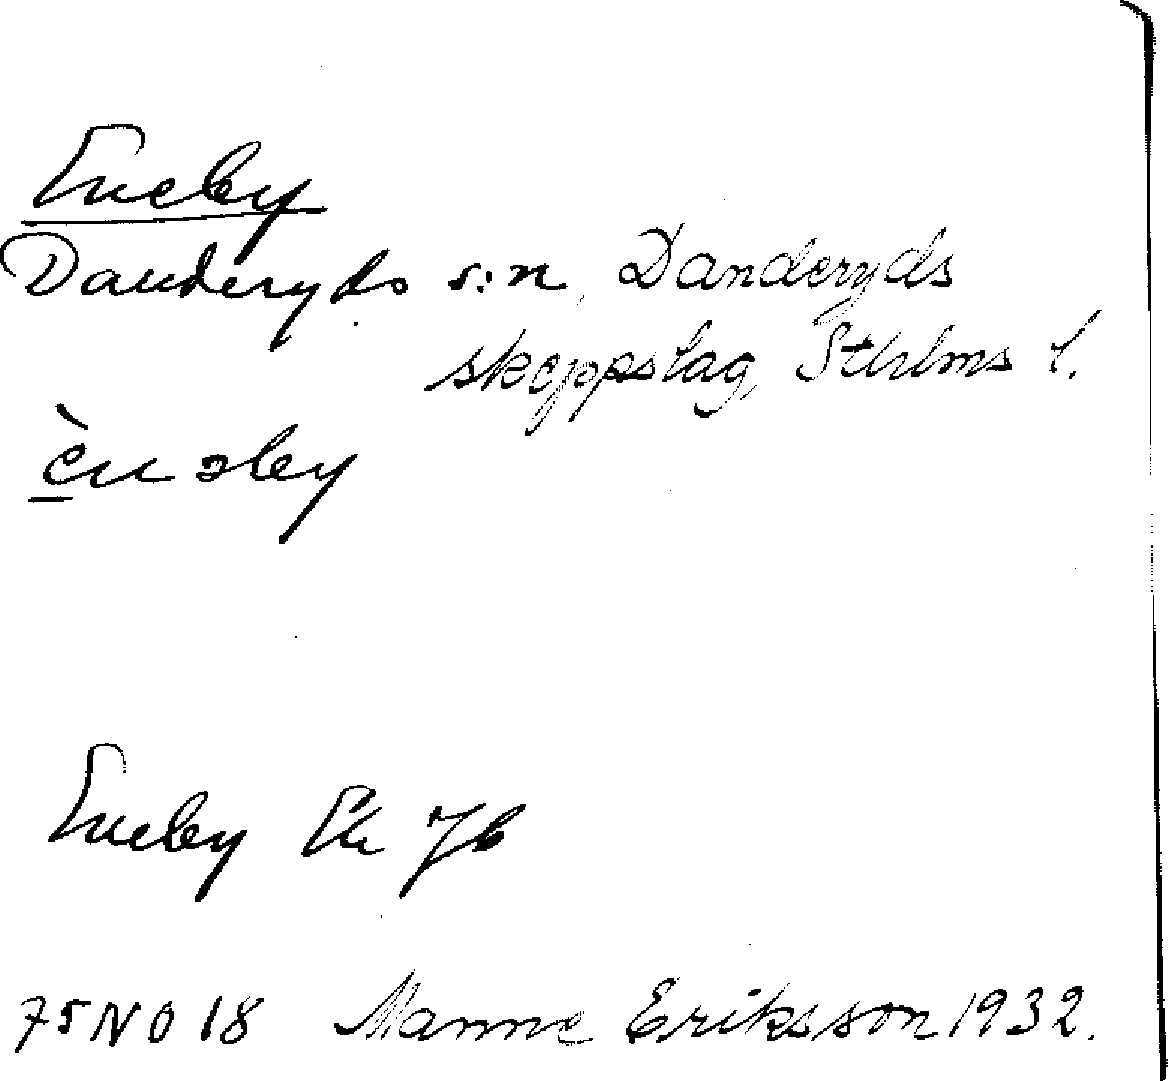 Eneby
Danderyds s:n, Danderyds
skeppslag, Sthlms l.
è̱nəby
Eneby Ek Jb
75NO18 Manne Eriksson 1932.